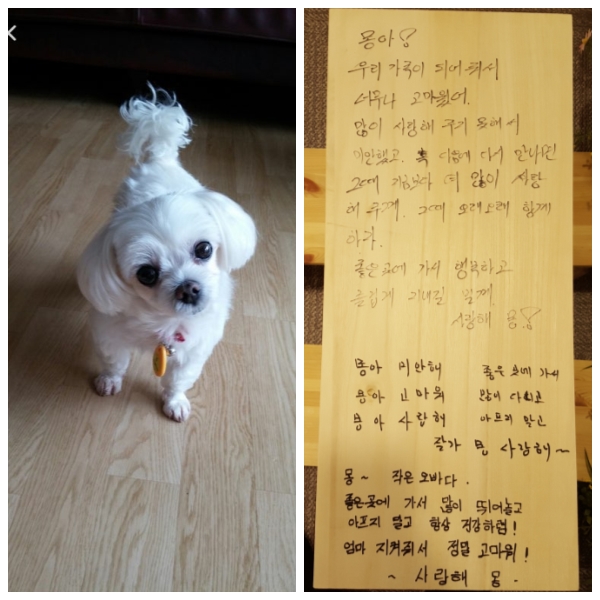 몽아!
우리 가족이 되어줘서
너무나 고마웠어.
많이 사랑해 주지 못해서
미안했고. 혹 다음에 다시 만나면
그때 지금보다 더 많이 사랑
해 줄게. 그때 오래오래 함께
하자.
좋은곳에 가서 행복하고
즐겁게 지내길 빌게.
사랑해 몽!
몽아 미안해 좋은곳에 가서
몽아 고마워 많이 다니고
몽아 사랑해 아프지 말고
잘가 몽 사랑해~
몽~ 작은 오빠다.
좋은곳에 가서 많이 뛰어놀고
아프지 말고 항상 건강하렴!
엄마 지켜줘서 정말 고마워!
~ 사랑해 몽.